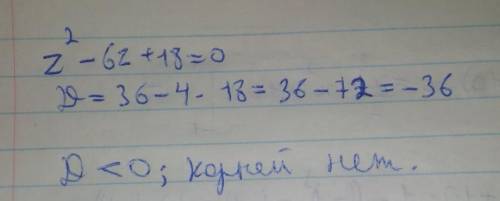 z² - 6z + 18 = 0
D = 36 - 4 · 18 = 36 - 72 = -36
D < 0; корней нет.